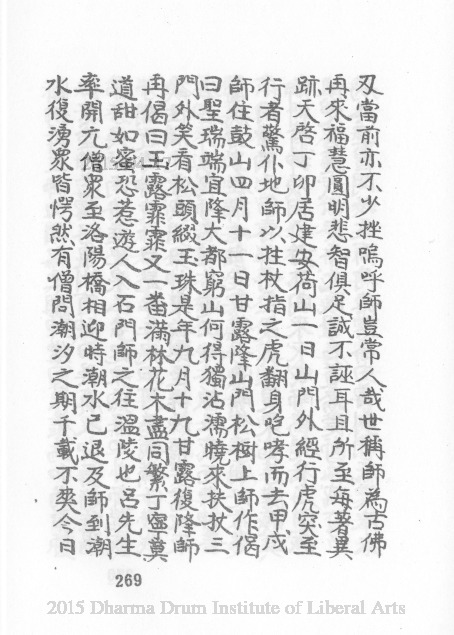 刄當前亦不少挫嗚呼師豈常人哉世稱師為古佛
再來福慧圓明悲智俱足誠不誣耳且所至每著異
跡天啓丁卯居建安荷山一日山門外經行虎突至
行者驚仆地師以拄杖指之虎翻身咆哮而去甲戌
師住鼓山四月十一日甘露降山門松樹上師作偈
曰聖瑞端宜降大都窮山何得獨沾濡曉來扶杖三
門外笑看松頭綴玉珠是年九月十九甘露復降師
再偈曰玉露霏霏又一番滿林花木盡同繁丁寧莫
道甜如蜜恐惹遊人入石門師之往溫陵也呂先生
率開元僧眾至洛陽橋相迎時潮水已退及師到潮
水復湧眾皆愕然有僧問潮汐之期千載不爽今日
269
2015 Dharma Drum Institute of Liberal Arts